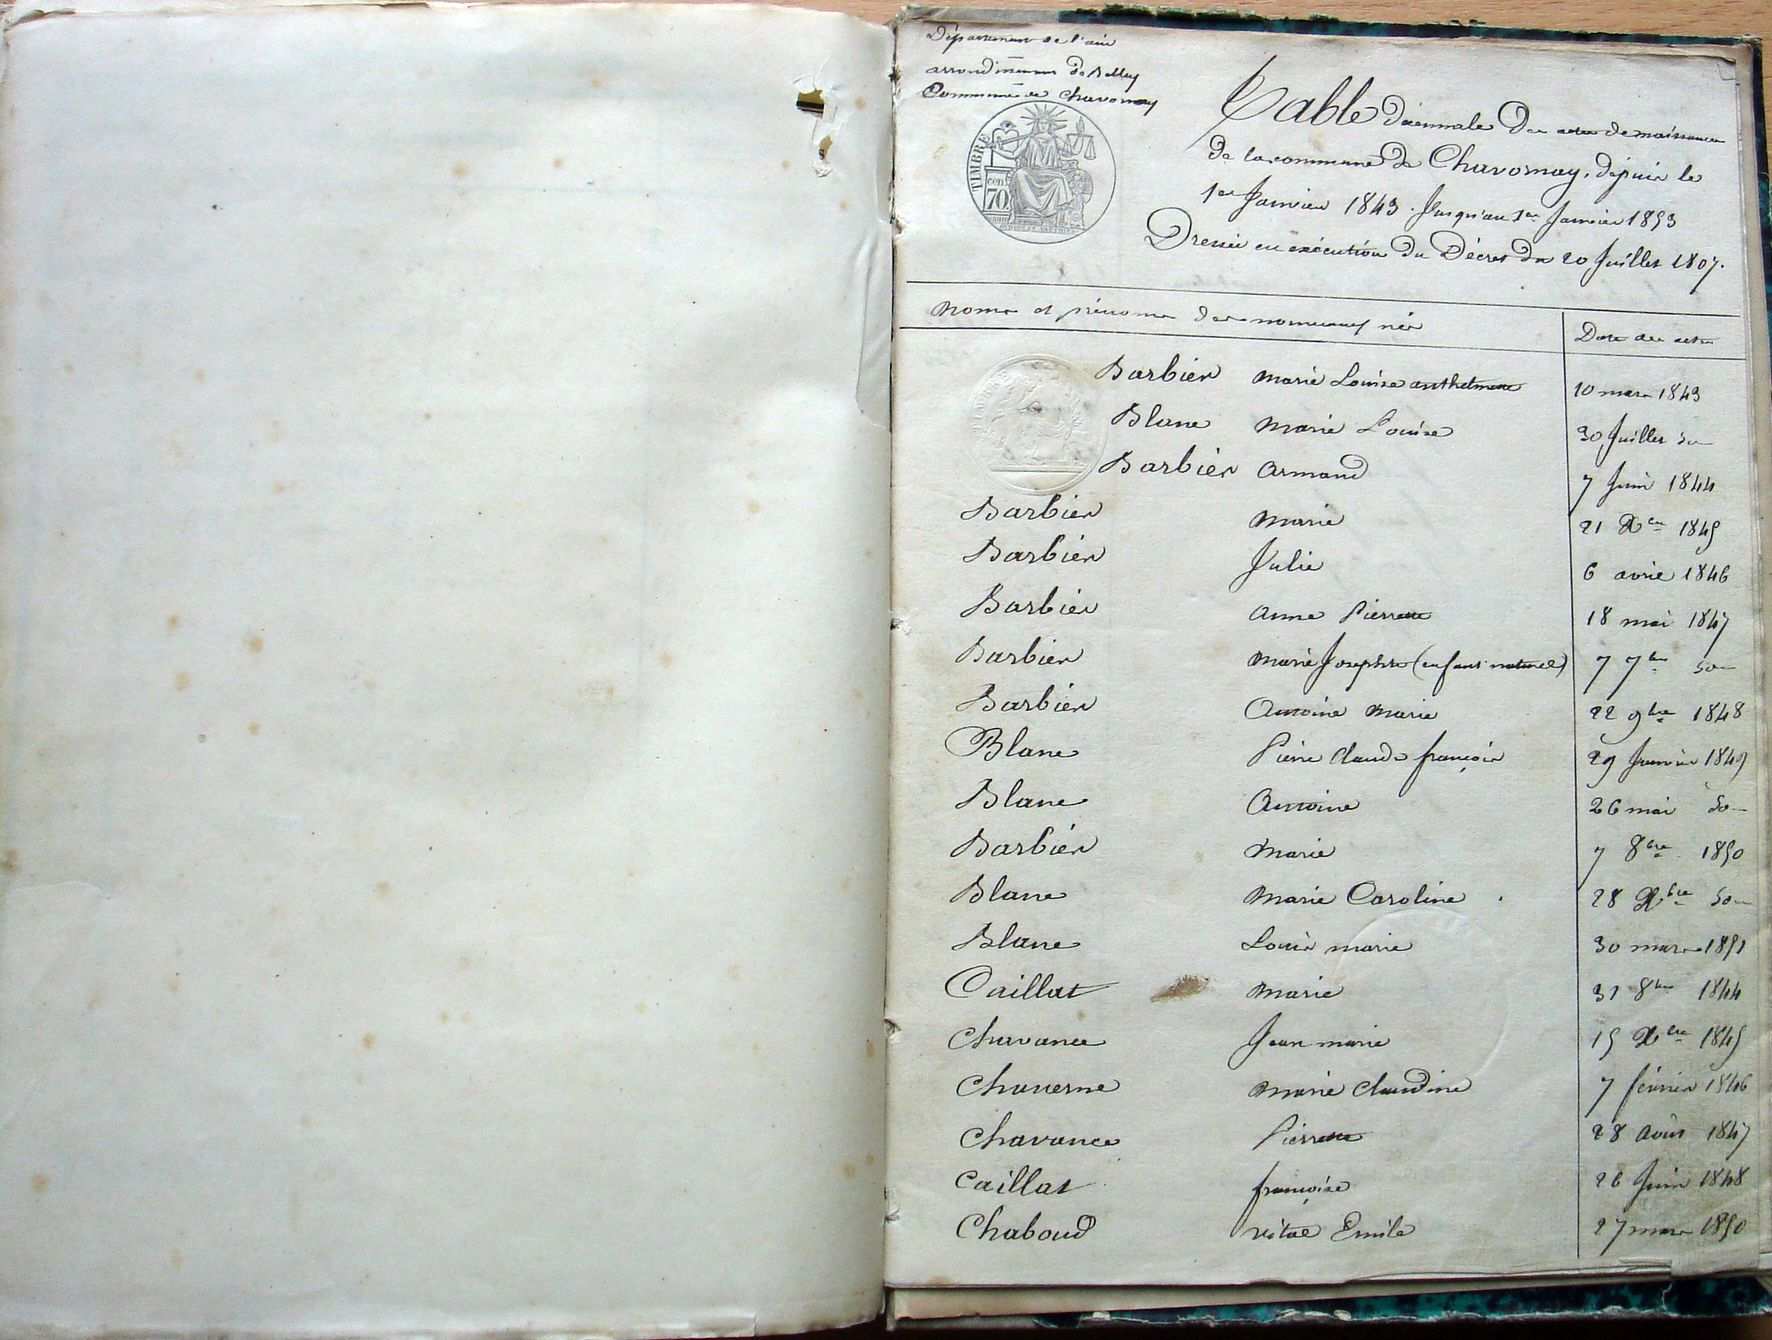 Département de l'ain
arrondissement de Belley
Commune de Chavornay
TIMBRE
cen.
70
Table décennale des actes de naissances
de la commune de Chavornay, depuis le
1er Janvier 1843 Jusqu'au 1er Janvier 1853
Dressée en exécution du Décret du 20 Juillet 1807.
noms et prénoms des nouveaux nés Date des actes
Barbier marie Louise anthelmette 10 mars 1843
Blanc marie Louise 30 Juillet do
Barbier Armand 7 Juin 1844
Barbier marie 21 Xbre 1845
Barbier Julie 6 avril 1846
Barbier anne Pierrette 18 mai 1847
Barbier marie Josephte (enfant naturel) 7 7bre do
Barbier Antoine marie 22 9bre 1848
Blanc Pierre claude françois 29 Janvier 1849
Blanc Antoine 26 mai do
Barbier marie 7 8bre 1850
Blanc marie Caroline 28 Xbre do
Blanc Louis marie 30 mars 1851
Caillat marie 31 8bre 1844
Chavance Jean marie 15 Xbre 1845
Chaverne marie claudine 7 février 1846
Chavance Pierrette 28 Août 1847
Caillat françoise 26 Juin 1848
Chaboud vital Emile 27 mars 1850